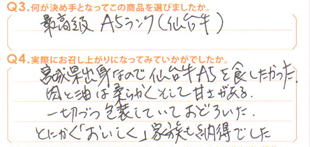 Q3.何が決め手となってこの商品を選びましたか。
最高級 A5ランク(仙台牛)
Q4.実際にお召し上がりになってみていかがでしたか。
宮城県出身なので仙台牛A5を食したかった。
肉と油は柔らかくとして甘さがある.
一切づつ包装していておどろいた.
とにかく「おいしく」家族も納得でした